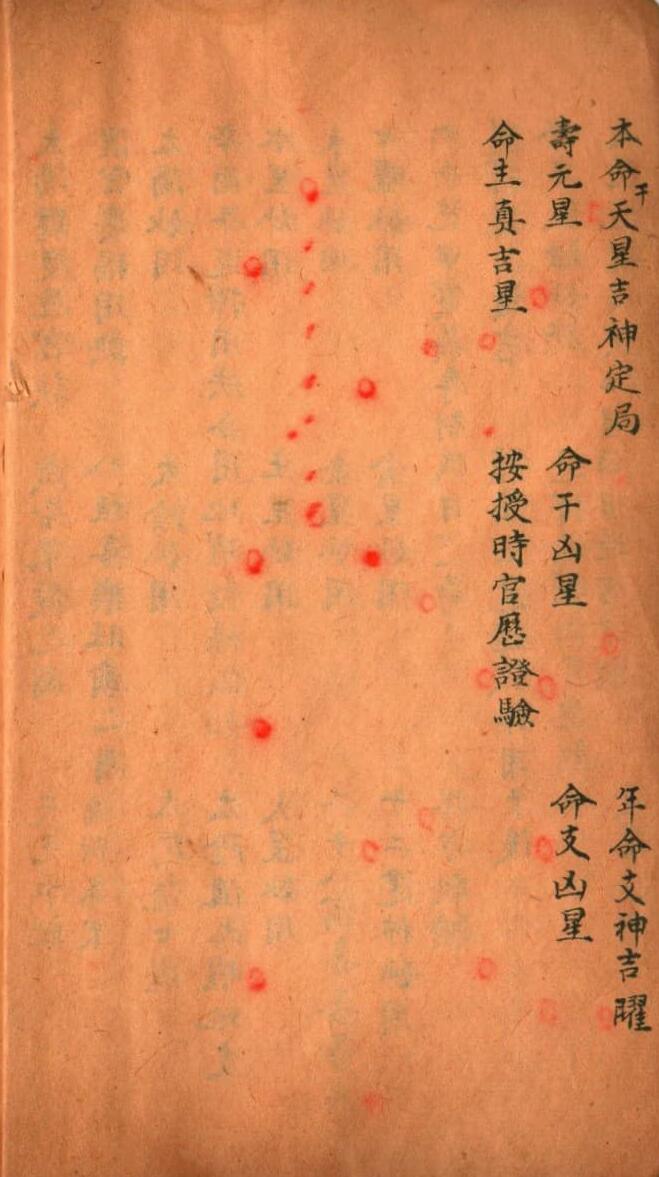 本命干天星吉神定局 年命支神吉曜
壽元星 命干凶星 命支凶星
命主真吉星 按授時官歷證驗